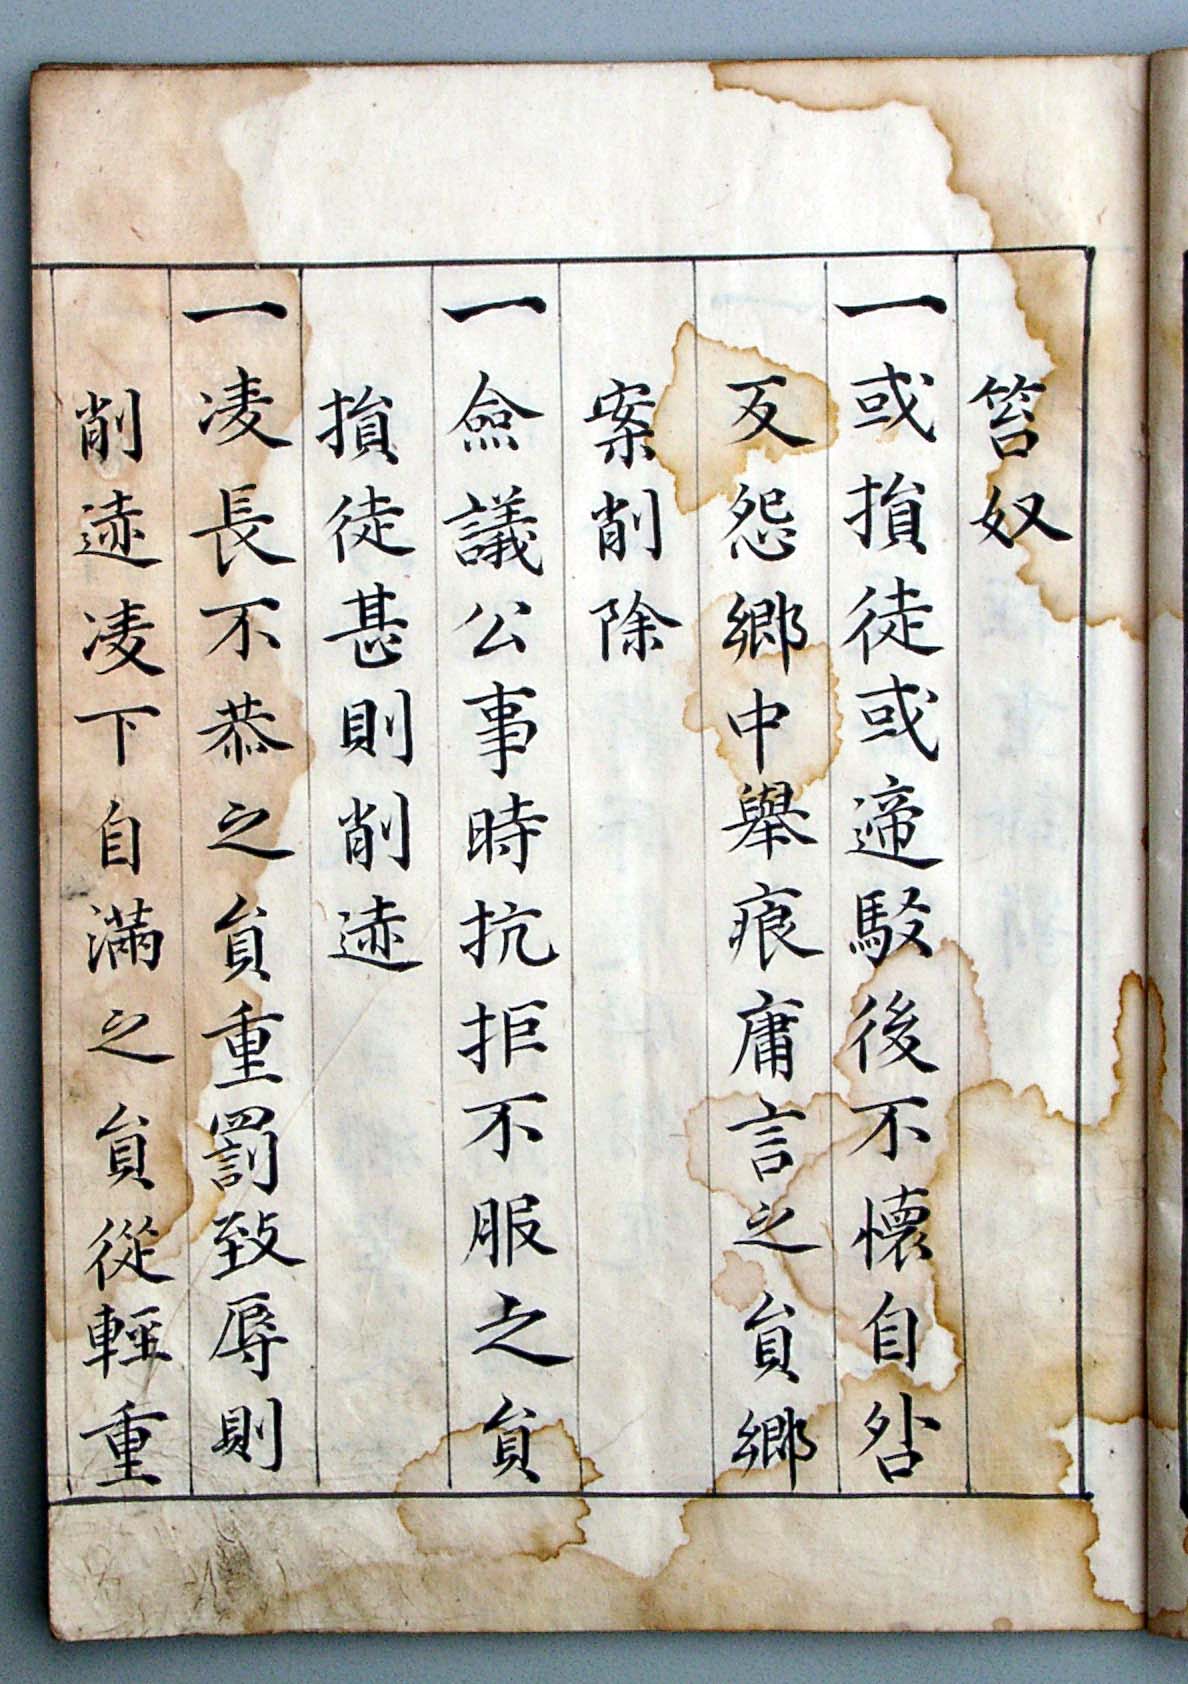 笞奴
一或損徒或遆駁後不懷自咎
反怨鄕中擧痕庸言之貟鄕
案削除
一僉議公事時抗拒不服之貟
損徒甚則削迹
一凌長不恭之貟重罰致辱則
削迹凌下自滿之貟從輕重